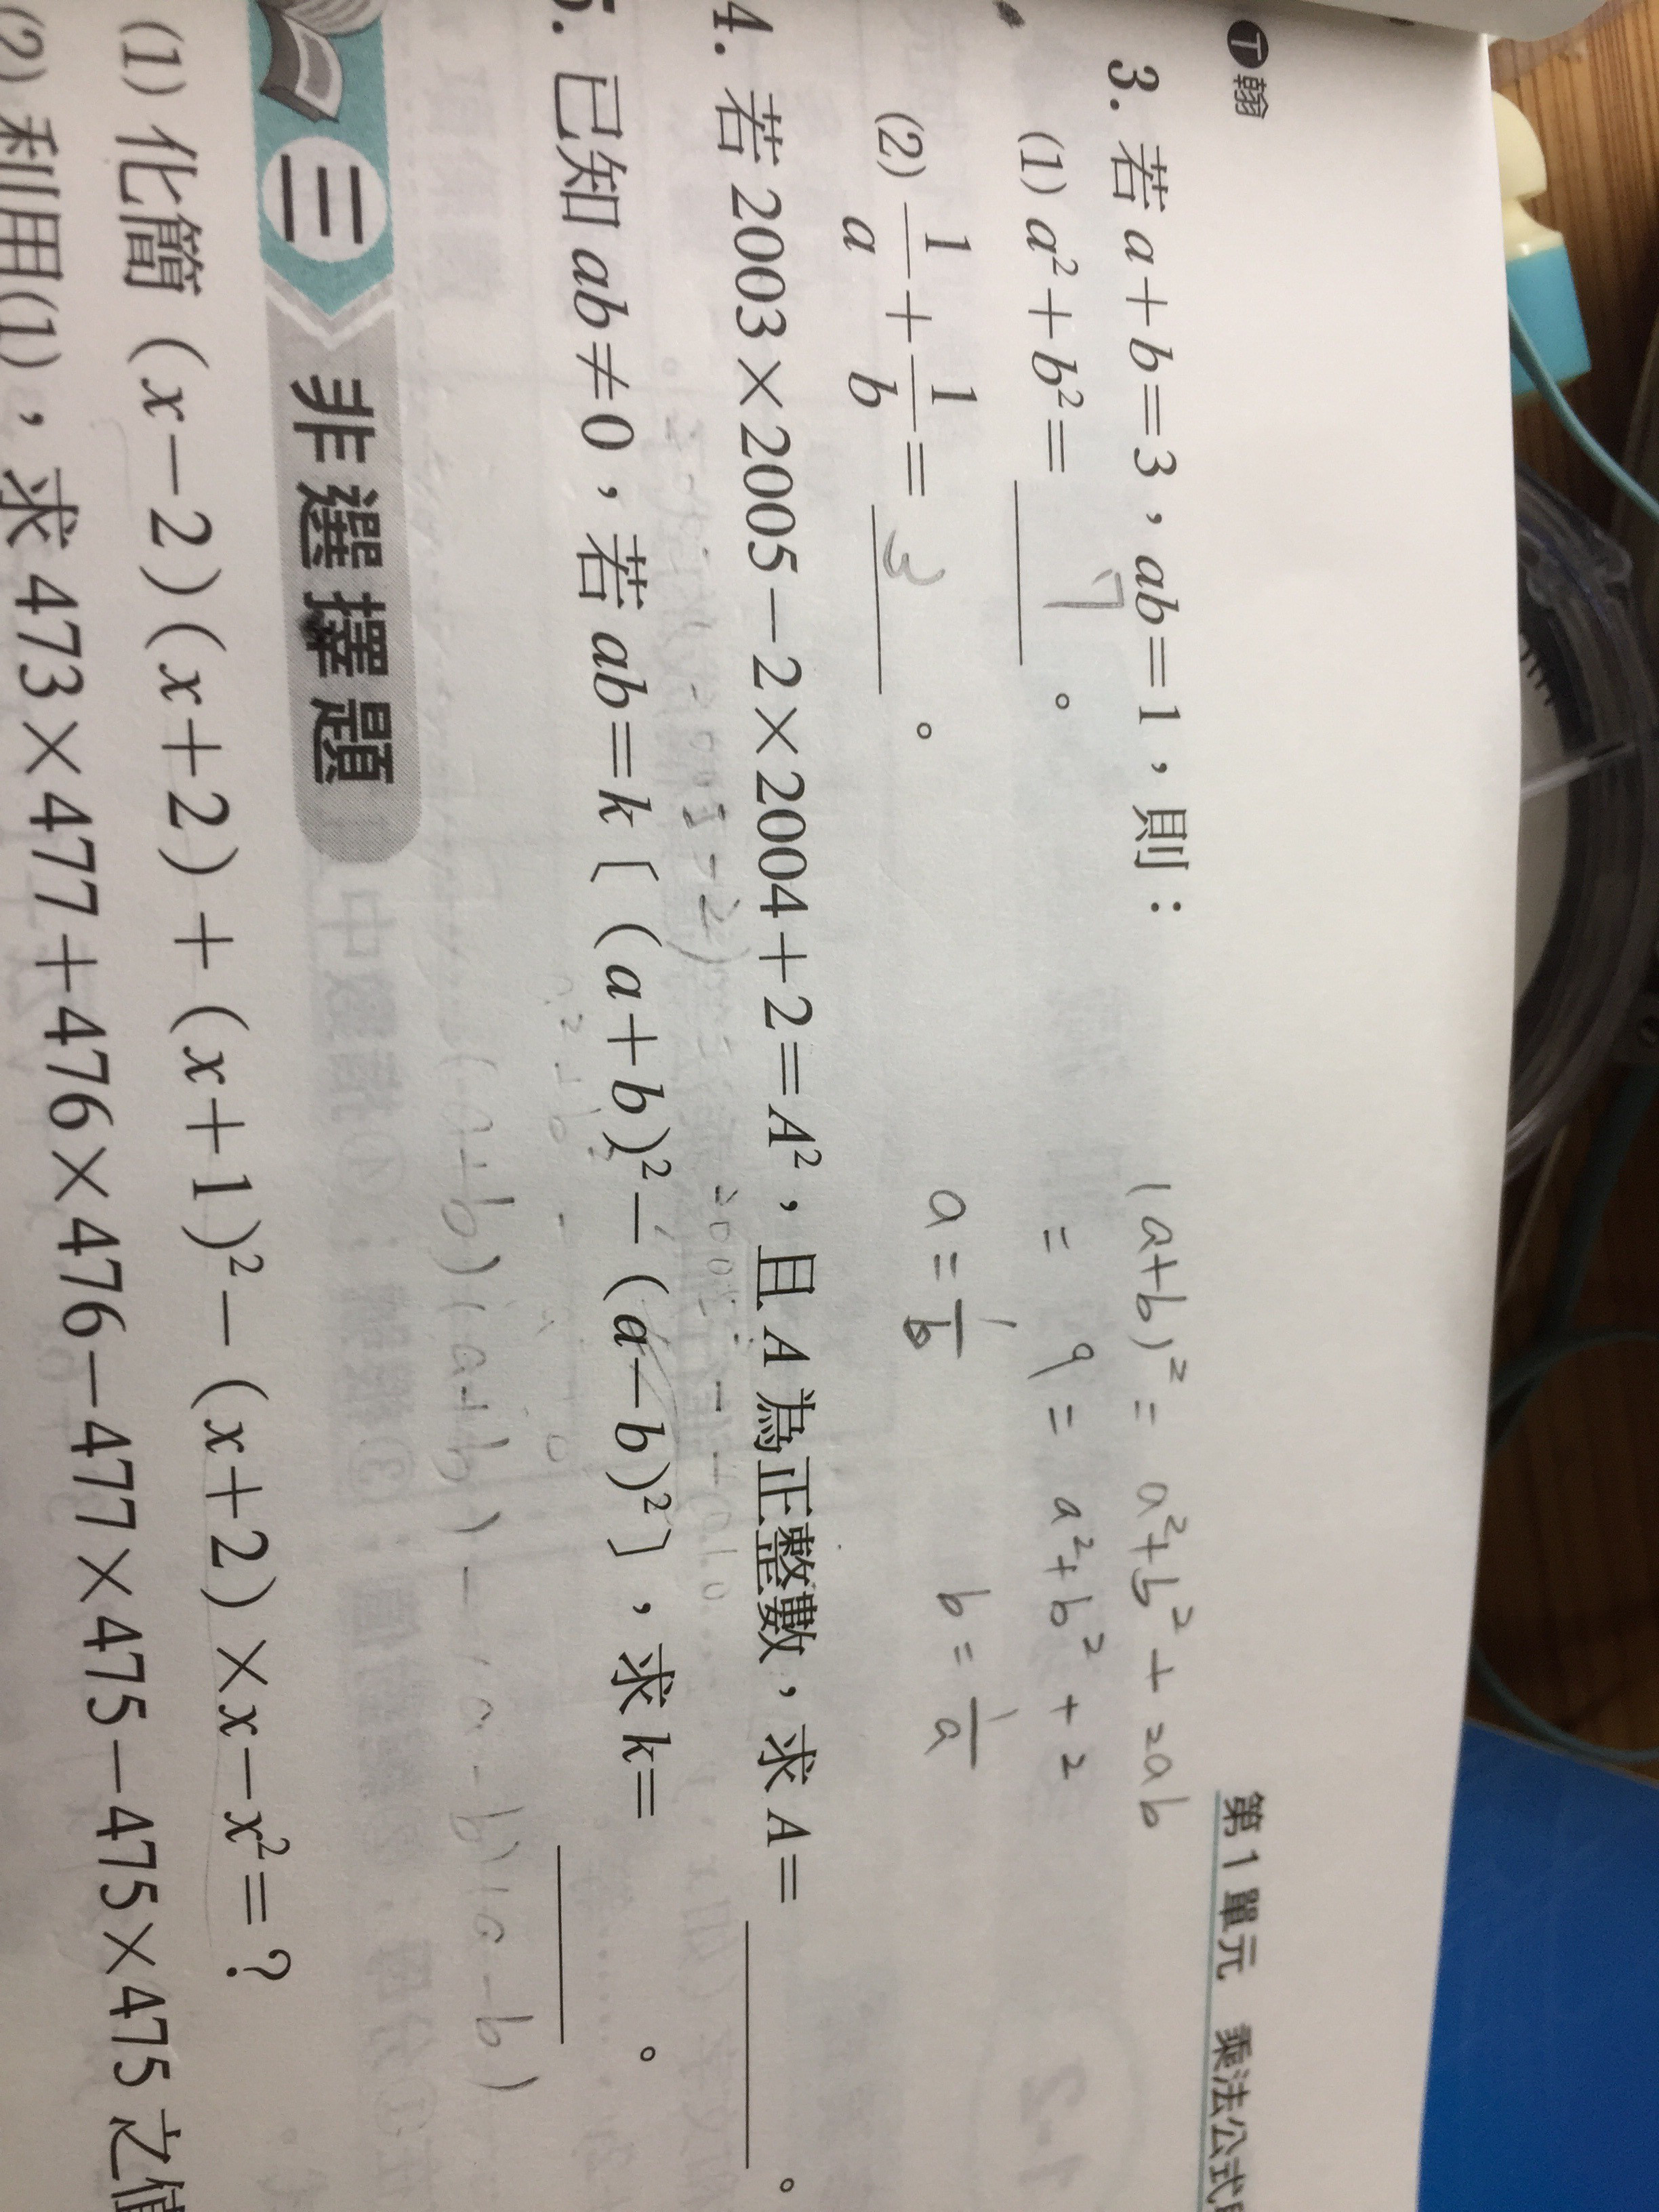 T 翰
第1單元 乘法公式
3. 若 a+b=3,ab=1,則:
(a+b)² = a²+b²+2ab
(1) a²+b²= 7 。
= 9 = a²+b²+2
(2) 1/a+1/b= 3 。
a=1/b b=1/a
4. 若 2003×2005-2×2004+2=A²,且 A 為正整數,求 A= 。
5. 已知 ab≠0,若 ab=k〔(a+b)²-(a-b)²〕,求 k= 。
(a+b)(a+b)-(a-b)(a-b)
三 非選擇題
(1) 化簡 (x-2)(x+2)+(x+1)²-(x+2)×x-x²=?
(2) 利用(1),求 473×477+476×476-477×475-475×475 之值